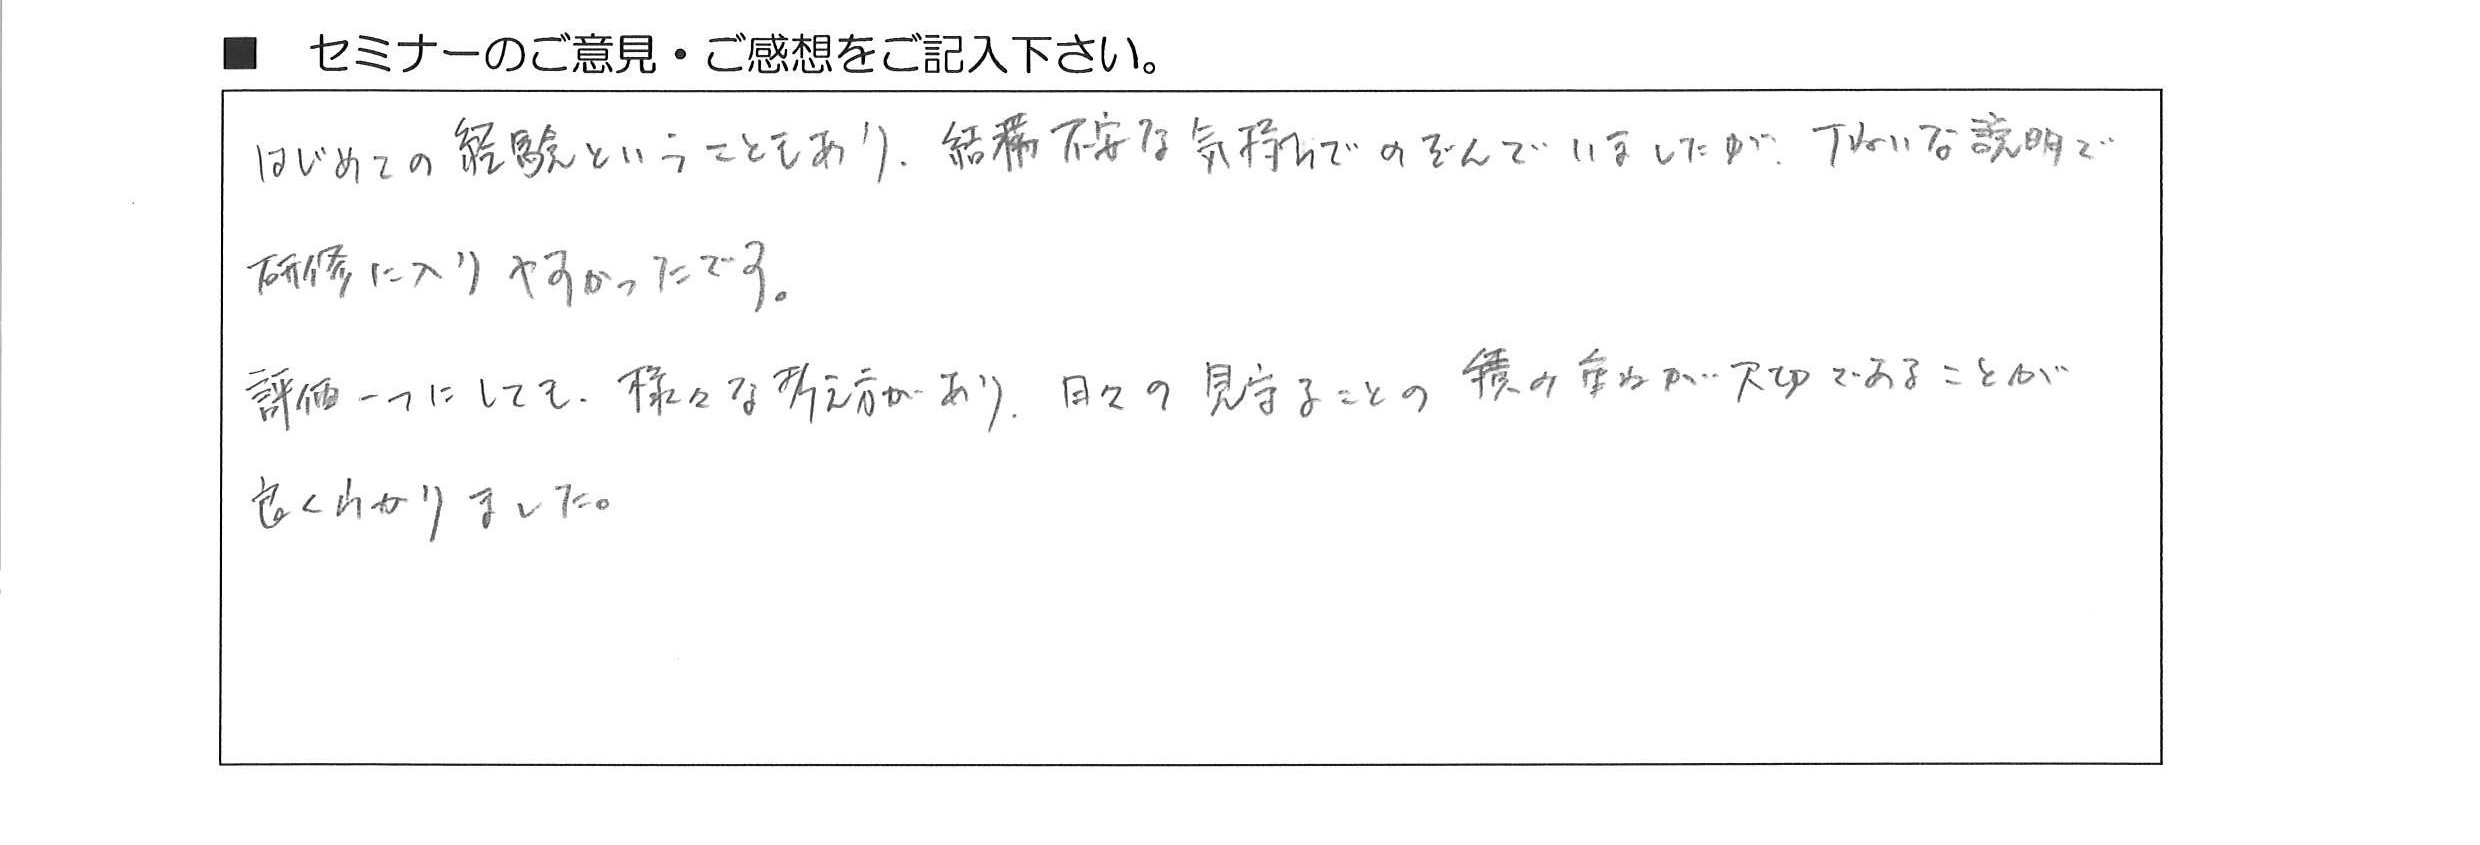 ■ セミナーのご意見・ご感想をご記入下さい。
はじめての経験ということもあり、結構不安な気持ちでのぞんでいましたが、丁ねいな説明で
研修に入りやすかったです。
評価一つにしても、様々な考え方があり、日々の見守ることの積み重ねが大切であることが
良くわかりました。